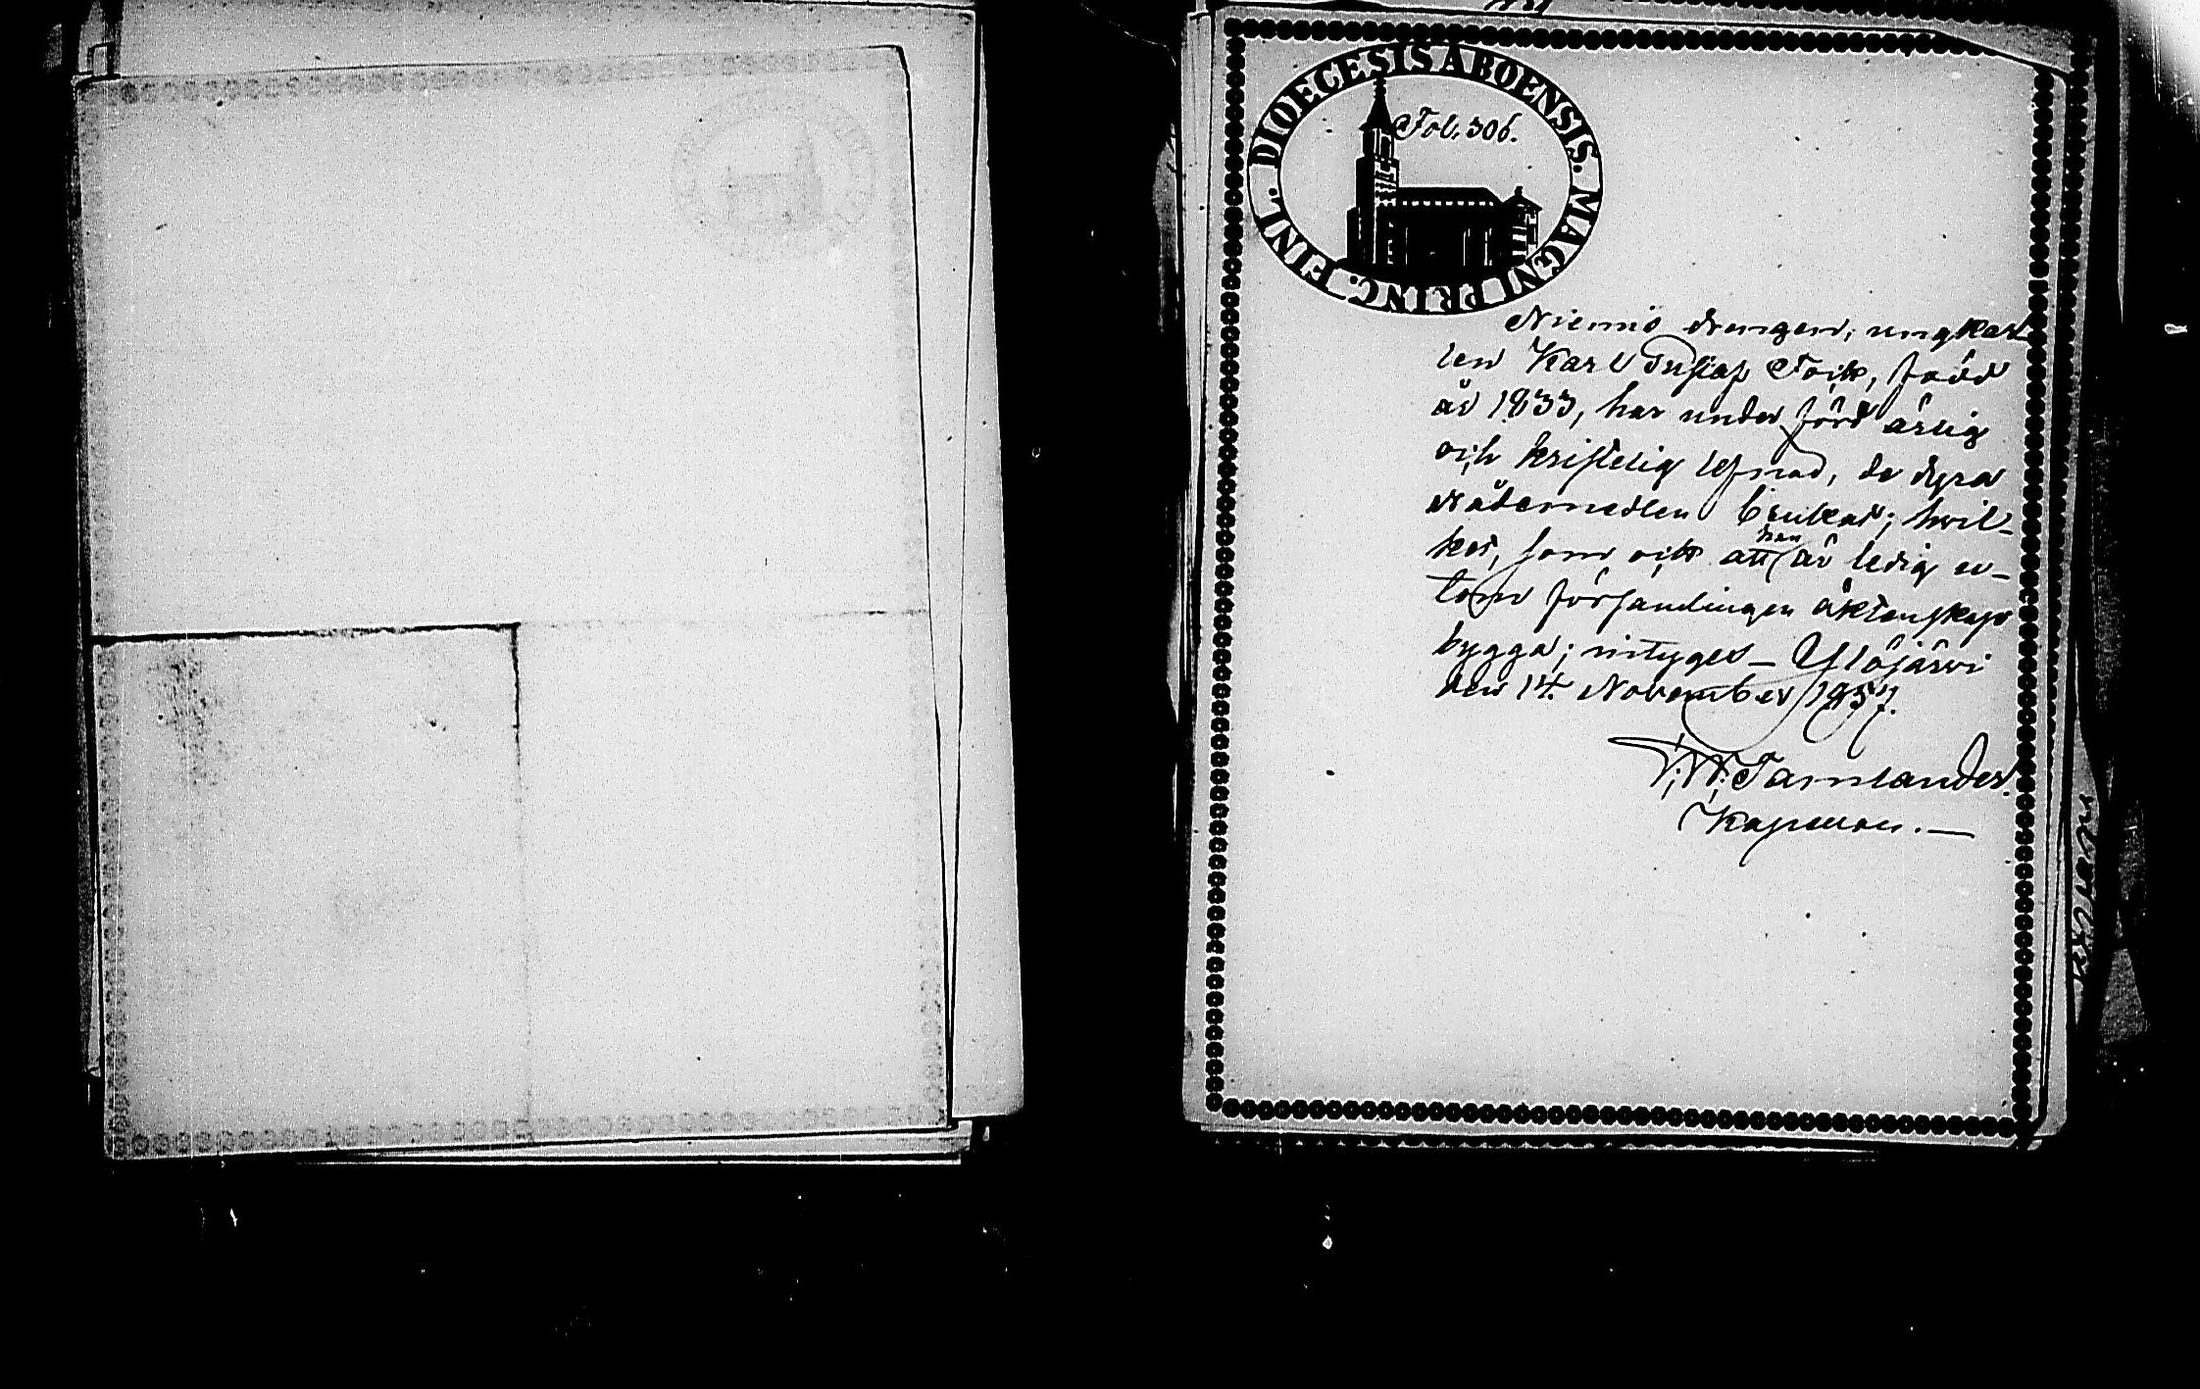 DIOECESIS ABOENSIS. MAGNI PRINC. FINL.
Fol. 306.
Niemis drengen, ungkar-
len Karl Gustaf, född
år 1833, har under förd ärlig
och kristelig lefnad, de dyra
nådemedlen brukat; hvil-
ket, som ock att han är ledig
förhandlingen äktenskaps
bygga; intygas – Ylöjärvi
den 14. November 1857.
Tamlander.
Kapellan. —